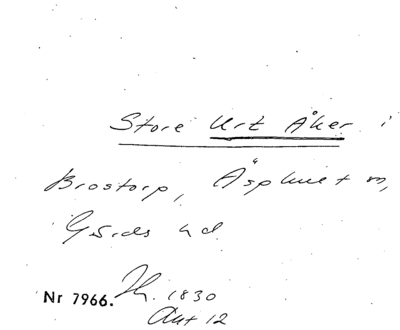 Store Urt Åker i
Brostorp, Äsphult sn,
Gärds hd
Nr 7966. Th. 1830
Akt 12